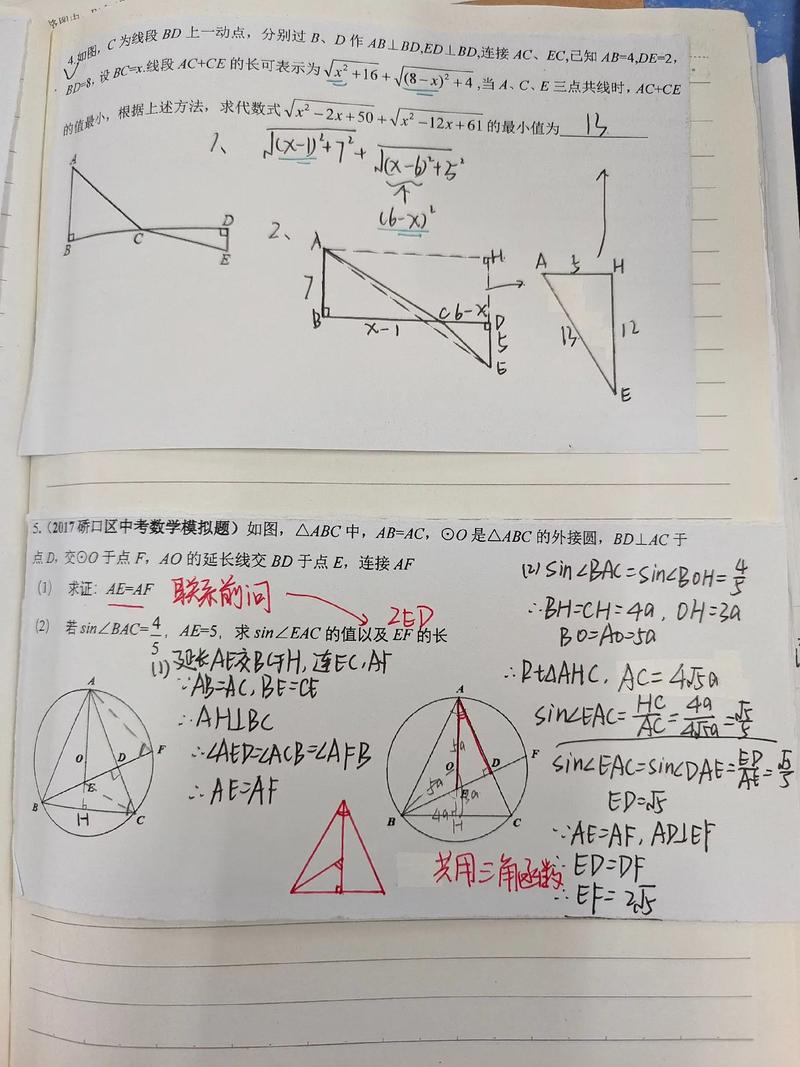 4.如图，C为线段BD上一动点，分别过B、D作AB⊥BD,ED⊥BD,连接AC、EC,已知AB=4,DE=2,
BD=8，设BC=x.线段AC+CE的长可表示为√(x²+16)+√((8−x)²+4),当A、C、E三点共线时，AC+CE
的值最小，根据上述方法，求代数式√(x²−2x+50)+√(x²−12x+61)的最小值为 13
1、√((x-1)²+7²)+√((x-6)²+5²)
↑
(6-x)²
A
B
C
D
E
2、
A
H
7
B
x-1
C
6-x
D
5
E
A
5
H
13
12
E
5.（2017硚口区中考数学模拟题）如图，△ABC中，AB=AC，⊙O是△ABC的外接圆，BD⊥AC于
点D,交⊙O于点F，AO的延长线交BD于点E，连接AF
(1) 求证：AE=AF 联系前问
2ED
(2) 若sin∠BAC=4/5，AE=5，求sin∠EAC的值以及EF的长
(1)延长AE交BC于H,连EC,AF
∵AB=AC,BE=CE
∴AH⊥BC
∴∠AED=∠ACB=∠AFB
∴AE=AF
A
O
D
F
E
B
H
C
A
5a
O
D
F
5a
E
3a
4a
B
H
C
共用三角函数
(2)sin∠BAC=sin∠BOH=4/5
∴BH=CH=4a,OH=3a
BO=AO=5a
∴Rt△AHC,AC=4√5a
sin∠EAC=HC/AC=4a/4√5a=√5/5
sin∠EAC=sin∠DAE=ED/AE=√5/5
ED=√5
∵AE=AF,AD⊥EF
∴ED=DF
∴EF=2√5